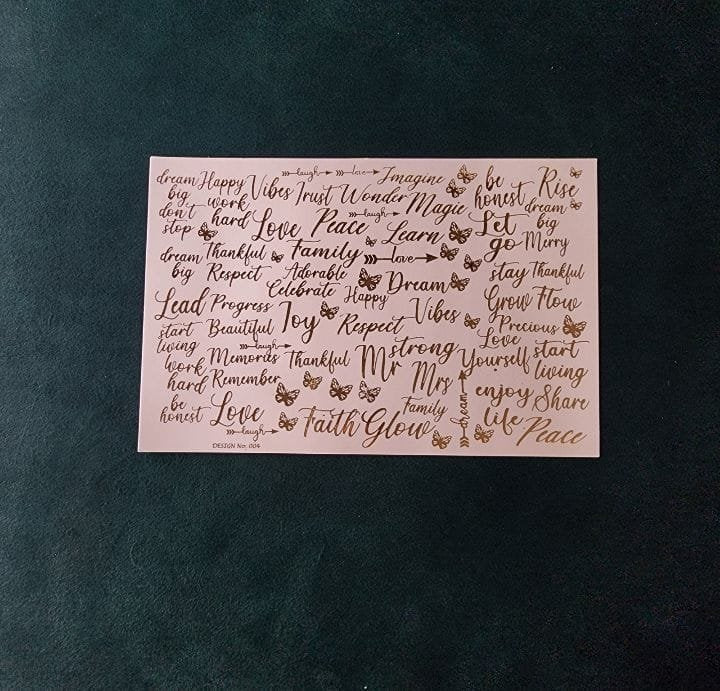 laugh love Imagine
dream big Happy Vibes Trust Wonder Magic be honest Rise
don't stop work hard Love Peace laugh Learn Let go dream big Merry
dream big Thankful Family love
Respect Adorable Dream stay Thankful
Celebrate Happy Grow Flow
Lead Progress Joy Respect Vibes Precious
start living Beautiful laugh Love Yourself start living
work hard Memories Thankful Mr strong
Remember Mrs dream enjoy life Share
be honest Love Family
laugh Faith Glow Peace
DESIGN No: 004